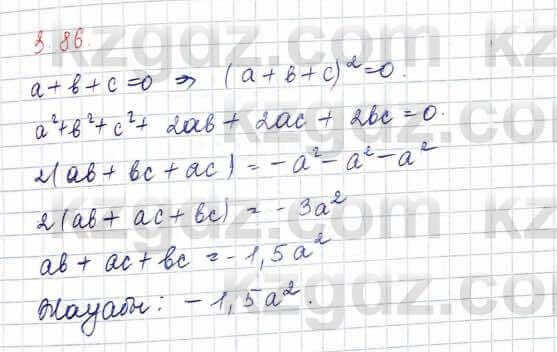 3.86.
a+b+c=0 ⇒ (a+b+c)²=0.
a²+b²+c²+ 2ab + 2ac + 2bc = 0.
2(ab + bc + ac) = -a²-a²-a²
2(ab + ac + bc) = -3a²
ab + ac + bc = -1,5a²
Жауабы: -1,5a².